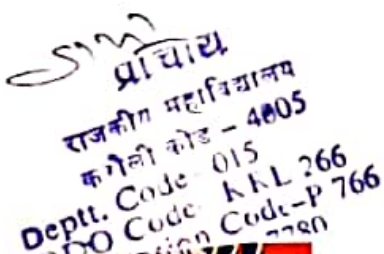 प्राचार्य
राजकीय महाविद्यालय
कोड - 4005
Deptt. Code 015
DDO Code KKL 266
Code-P 766